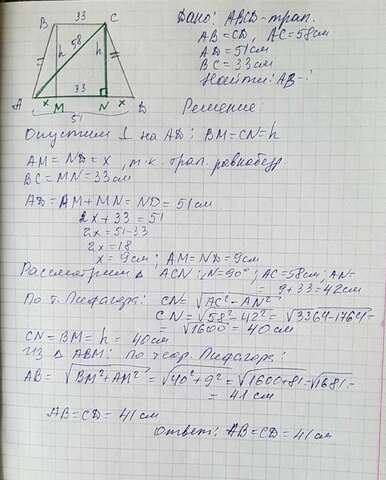 33
B C
58
h h
33
A x M N x D
51
Дано: ABCD-трап.
AB=CD, AC=58см
AD=51см
BC=33см
Найти: AB-?
Решение:
Опустим ⊥ на AD: BM=CN=h
AM=ND=x, т.к. трап. равнобедр.
BC=MN=33см
AD=AM+MN=ND=51см
2x+33=51
2x=51-33
2x=18
x=9см; AM=ND=9см
Рассмотрим Δ ACN: ∠N=90°; AC=58см; AN=
=9+33=42см
По т. Пифагора: CN=√AC²-AN²
CN=√58²-42²=√3364-1764=
=√1600=40см
CN=BM=h=40см
Из Δ ABM: по теор. Пифагора:
AB=√BM²+AM²=√40²+9²=√1600+81=√1681=
=41см
AB=CD=41см
Ответ: AB=CD=41см